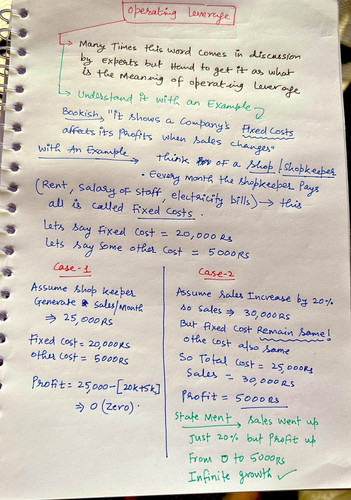 Operating Leverage
Many Times this word comes in discussion
by Experts but Hard to get it as what
is the Meaning of operating leverage
Understand it with an Example
Bookish, "it shows a Company's Fixed Costs
affects its Profits when sales changes"
With An Example → think of a shop / Shopkeeper
. Eevery month the shopkeeper Pays
(Rent, Salary of Staff, electricity bills) → this
all is called Fixed Costs.
Lets say Fixed Cost = 20,000 Rs
Lets say Some other Cost = 5000 Rs
Case-1
Assume shop keeper
Generate Sales/Month
⇒ 25,000 Rs
Fixed Cost = 20,000 Rs
other Cost = 5000 Rs
Profit = 25,000 - [20k+5k]
⇒ 0 (zero).
Case-2
Assume sales Increase by 20%
so Sales ⇒ 30,000 Rs
But fixed Cost Remain Same!
othe cost also same
So Total Cost = 25,000 Rs
Sales = 30,000 Rs
Profit = 5000 Rs
State Ment → sales went up
Just 20% but Profit up
From 0 to 5000 Rs
Infinite growth ✓